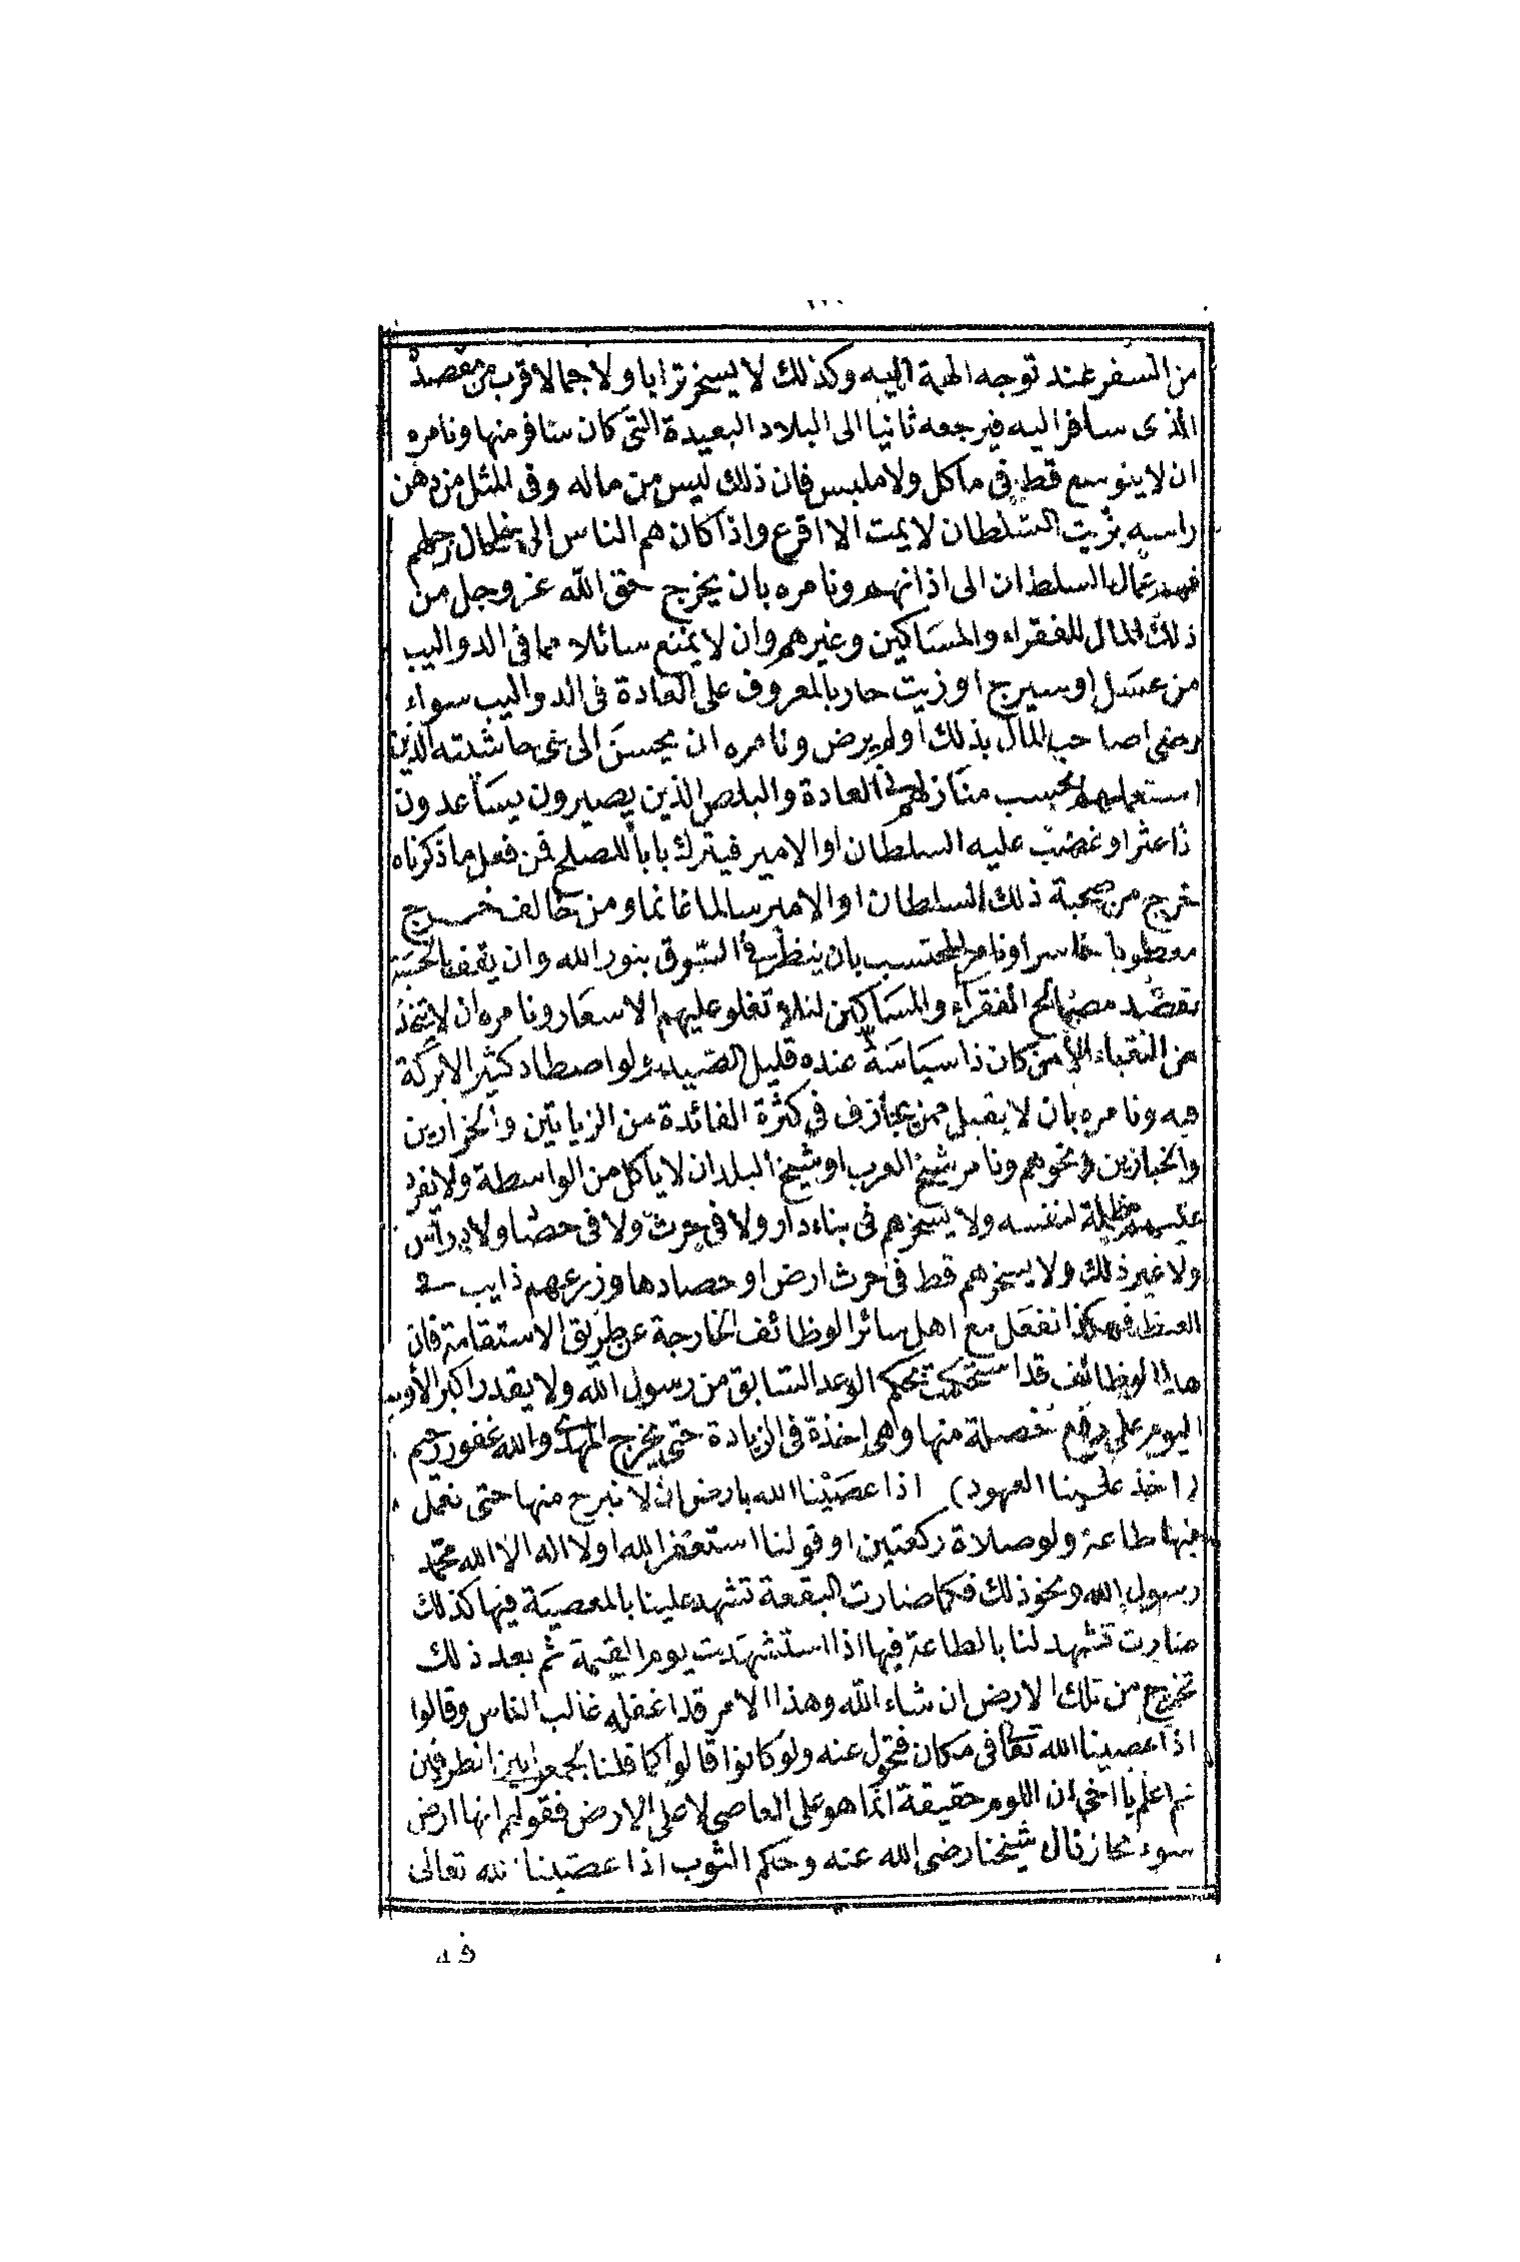 من السفر عند توجه الهمة اليه وكذلك لا يسخر ترابا ولا جمالا قرب من مقصده
الذى سافر اليه فيرجعه ثانيا الى البلاد البعيدة التى كان سافر منها ونامره
ان لا يتوسع قط فى ماكل ولا ملبس فان ذلك ليس من ماله وفى المثل من دهن
راسه بزيت السلطان لا يمت الا اقرع واذا كان هم الناس الى رجلهم
فهم عمال السلطان الى اذانهم ونامره بان يخرج حق الله عز وجل من
ذلك المال للفقراء والمساكين وغيرهم وان لا يمنع سائلا مما فى الدواليب
من عسل او سيرج او زيت حار بالمعروف على العادة فى الدواليب سواء
رضى اصاحب المال بذلك او لم يرض ونامره ان يحسن الى حاشدته الذين
استعملهم بحسب منازلهم فى العادة والبلص الذين يصيرون يساعدون
ذا عثر او غضب عليه السلطان او الامير فيترك بابا للصلح فمن فعل ما ذكرناه
خرج من صحبة ذلك السلطان او الامير سالما غانما ومن خالف خرج
معطوبا خاسرا ونامر المحتسب بان ينظر فى السوق بنور الله وان يقف بالحسبة
بقصد مصالح الفقراء والمساكين لئلا تغلو عليهم الاسعار ونامره ان لا يتخذ
من النقباء الا من كان ذا سياسة عنده قليل الصيد ولو اصطاد كثير الا بركة
فيه ونامره بان لا يقبل ممن يجازف فى كثرة الفائدة من الزياتين والجزارين
والخبازين ونحوهم ونامر شيخ العرب او شيخ البلد ان لا ياكل من الواسطة ولا يفرد
عليهم مظلمة لنفسه ولا يسخرهم فى بناء دار ولا فى حرث ولا فى حصاد ولا دراس
ولا غير ذلك ولا يسخرهم قط فى حرث ارض او حصادها وزرعهم ذايب فى
الغيظ فهكذا نفعل مع اهل سائر الوظائف الخارجة عن طريق الاستقامة فان
هذه الوظائف قد استحكمت بحكم الوعد السابق من رسول الله ولا يقدر اكبر الاولياء
اليوم على دفع خصلة منها وهى اخذة فى الزيادة حتى يخرج المهدى والله غفور رحيم
(اخذ علينا العهود) اذا عصينا الله بارض ان لا نبرح منها حتى نعمل
فيها طاعة ولو صلاة ركعتين او قولنا استغفر الله او لا اله الا الله محمد
رسول الله ونحو ذلك فكما صارت البقعة تشهد علينا بالمعصية فيها كذلك
صارت تشهد لنا بالطاعة فيها اذا استشهدت يوم القيمة ثم بعد ذلك
نخرج من تلك الارض ان شاء الله وهذا الامر قد اغفله غالب الناس وقالوا
اذا عصينا الله تعالى فى مكان فتحول عنه ولو كانوا قالوا كما قلنا لجمعوا بين الطرفين
ثم اعلم يا اخى ان اللوم حقيقة انما هو على العاصى لا على الارض فقولهم انها ارض
سوء مجاز قال شيخنا رضى الله عنه وحكم الثوب اذا عصينا الله تعالى
فيه